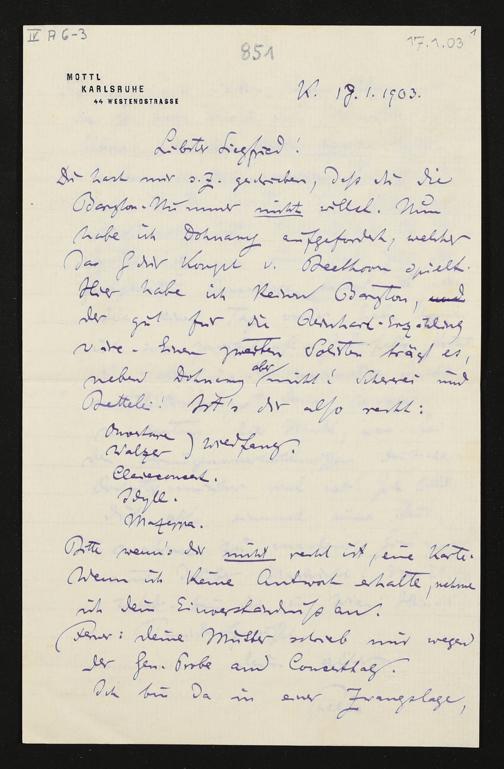 IV A 6-3
851
17.1.03
1
MOTTL
KARLSRUHE
44 WESTENDSTRASSE
K. 17.1.1903.
Liebster Siegfried!
Du hast mir s.Z. geschrieben, daß du die
Baryton-Nummer nicht willst. Nun
habe ich Dohnany aufgefordert, welcher
das G dur Konzert v. Beethoven spielt.
Hier habe ich keinen Baryton, und
der gut für die Reinhart-Erzählung
wäre. Einen zweiten Solisten trägt es,
neben Dohnany aber nicht! Scherrei und
Bettelei! Ist's dir also recht:
Ouverture
Walzer ) Wildfang.
Clavierconcert.
Idyll.
Mazeppa.
Bitte wenn's dir nicht recht ist, eine Karte.
Wenn ich keine Antwort erhalte, nehme
ich dein Einverständniß an.
Ferner: deine Mutter schrieb mir wegen
der Gen. Probe am Concerttag.
Ich bin da in einer Zwangslage,